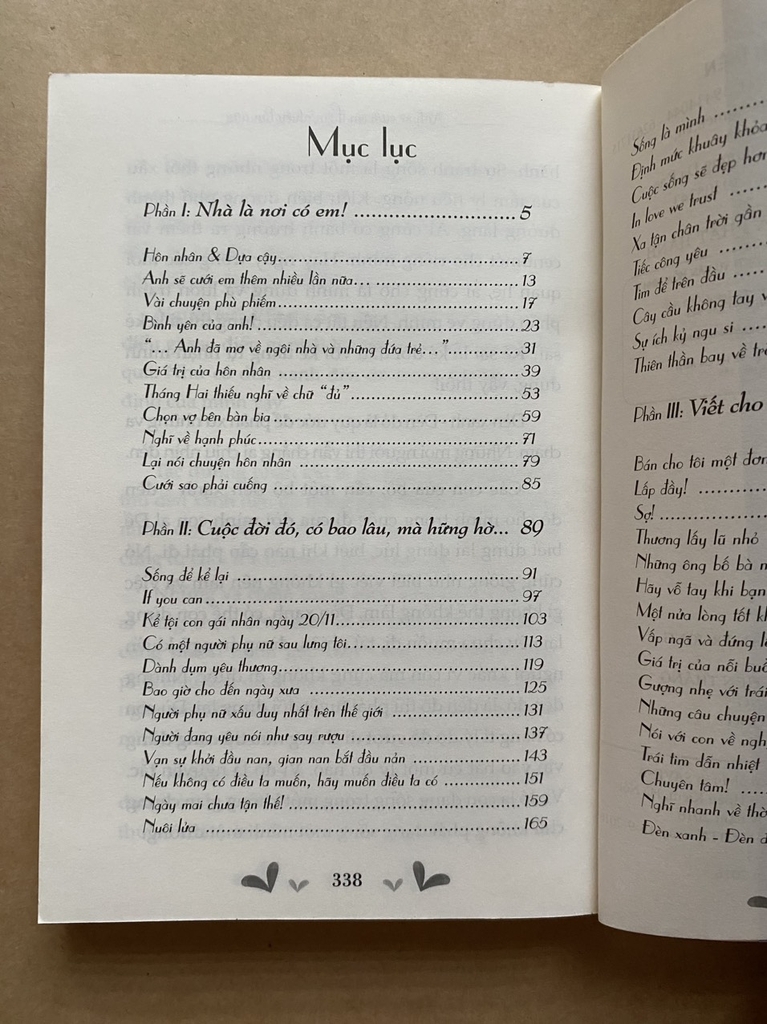 Mục lục
Phần I: Nhà là nơi có em! ............................ 5
Hôn nhân & Dựa cậy............................................ 7
Anh sẽ cưới em thêm nhiều lần nữa... ......................... 13
Vài chuyện phù phiếm.......................................... 17
Bình yên của anh!............................................. 23
“... Anh đã mơ về ngôi nhà và những đứa trẻ...”............. 31
Giá trị của hôn nhân ......................................... 39
Tháng Hai thiếu nghĩ về chữ “đủ”............................. 53
Chọn vợ bên bàn bia .......................................... 59
Nghĩ về hạnh phúc............................................. 71
Lại nói chuyện hôn nhân ...................................... 79
Cưới sao phải cuống .......................................... 85
Phần II: Cuộc đời đó, có bao lâu, mà hững hờ... 89
Sống để kể lại ............................................... 91
If you can ................................................... 97
Kể tội con gái nhân ngày 20/11............................... 103
Có một người phụ nữ sau lưng tôi............................. 113
Dành dụm yêu thương.......................................... 119
Bao giờ cho đến ngày xưa .................................... 125
Người phụ nữ xấu duy nhất trên thế giới ..................... 131
Người đang yêu nói như say rượu ............................. 137
Vạn sự khởi đầu nan, gian nan bắt đầu nản ................... 143
Nếu không có điều ta muốn, hãy muốn điều ta có .............. 151
Ngày mai chưa tận thế! ...................................... 159
Nuôi lửa .................................................... 165
338
Sống là mình ........
Định mức khuây khỏa
Cuộc sống sẽ đẹp hơn
In love we trust .......
Xa tận chân trời gần
Tiếc công yêu ........
Tim để trên đầu ......
Cây cầu không tay v
Sự ích kỷ ngu si ......
Thiên thần bay về tr
Phần III: Viết cho
Bán cho tôi một đơn
Lấp đầy! ..........
Sợ!................
Thương lấy lũ nhỏ
Những ông bố bà m
Hãy vỗ tay khi bạn
Một nửa lòng tốt kh
Vấp ngã và đứng l
Giá trị của nỗi buồ
Gượng nhẹ với trái
Những câu chuyện
Nói với con về ngh
Trái tim dẫn nhiệt
Chuyên tâm! ....
Nghĩ nhanh về thờ
Đèn xanh - Đèn đ